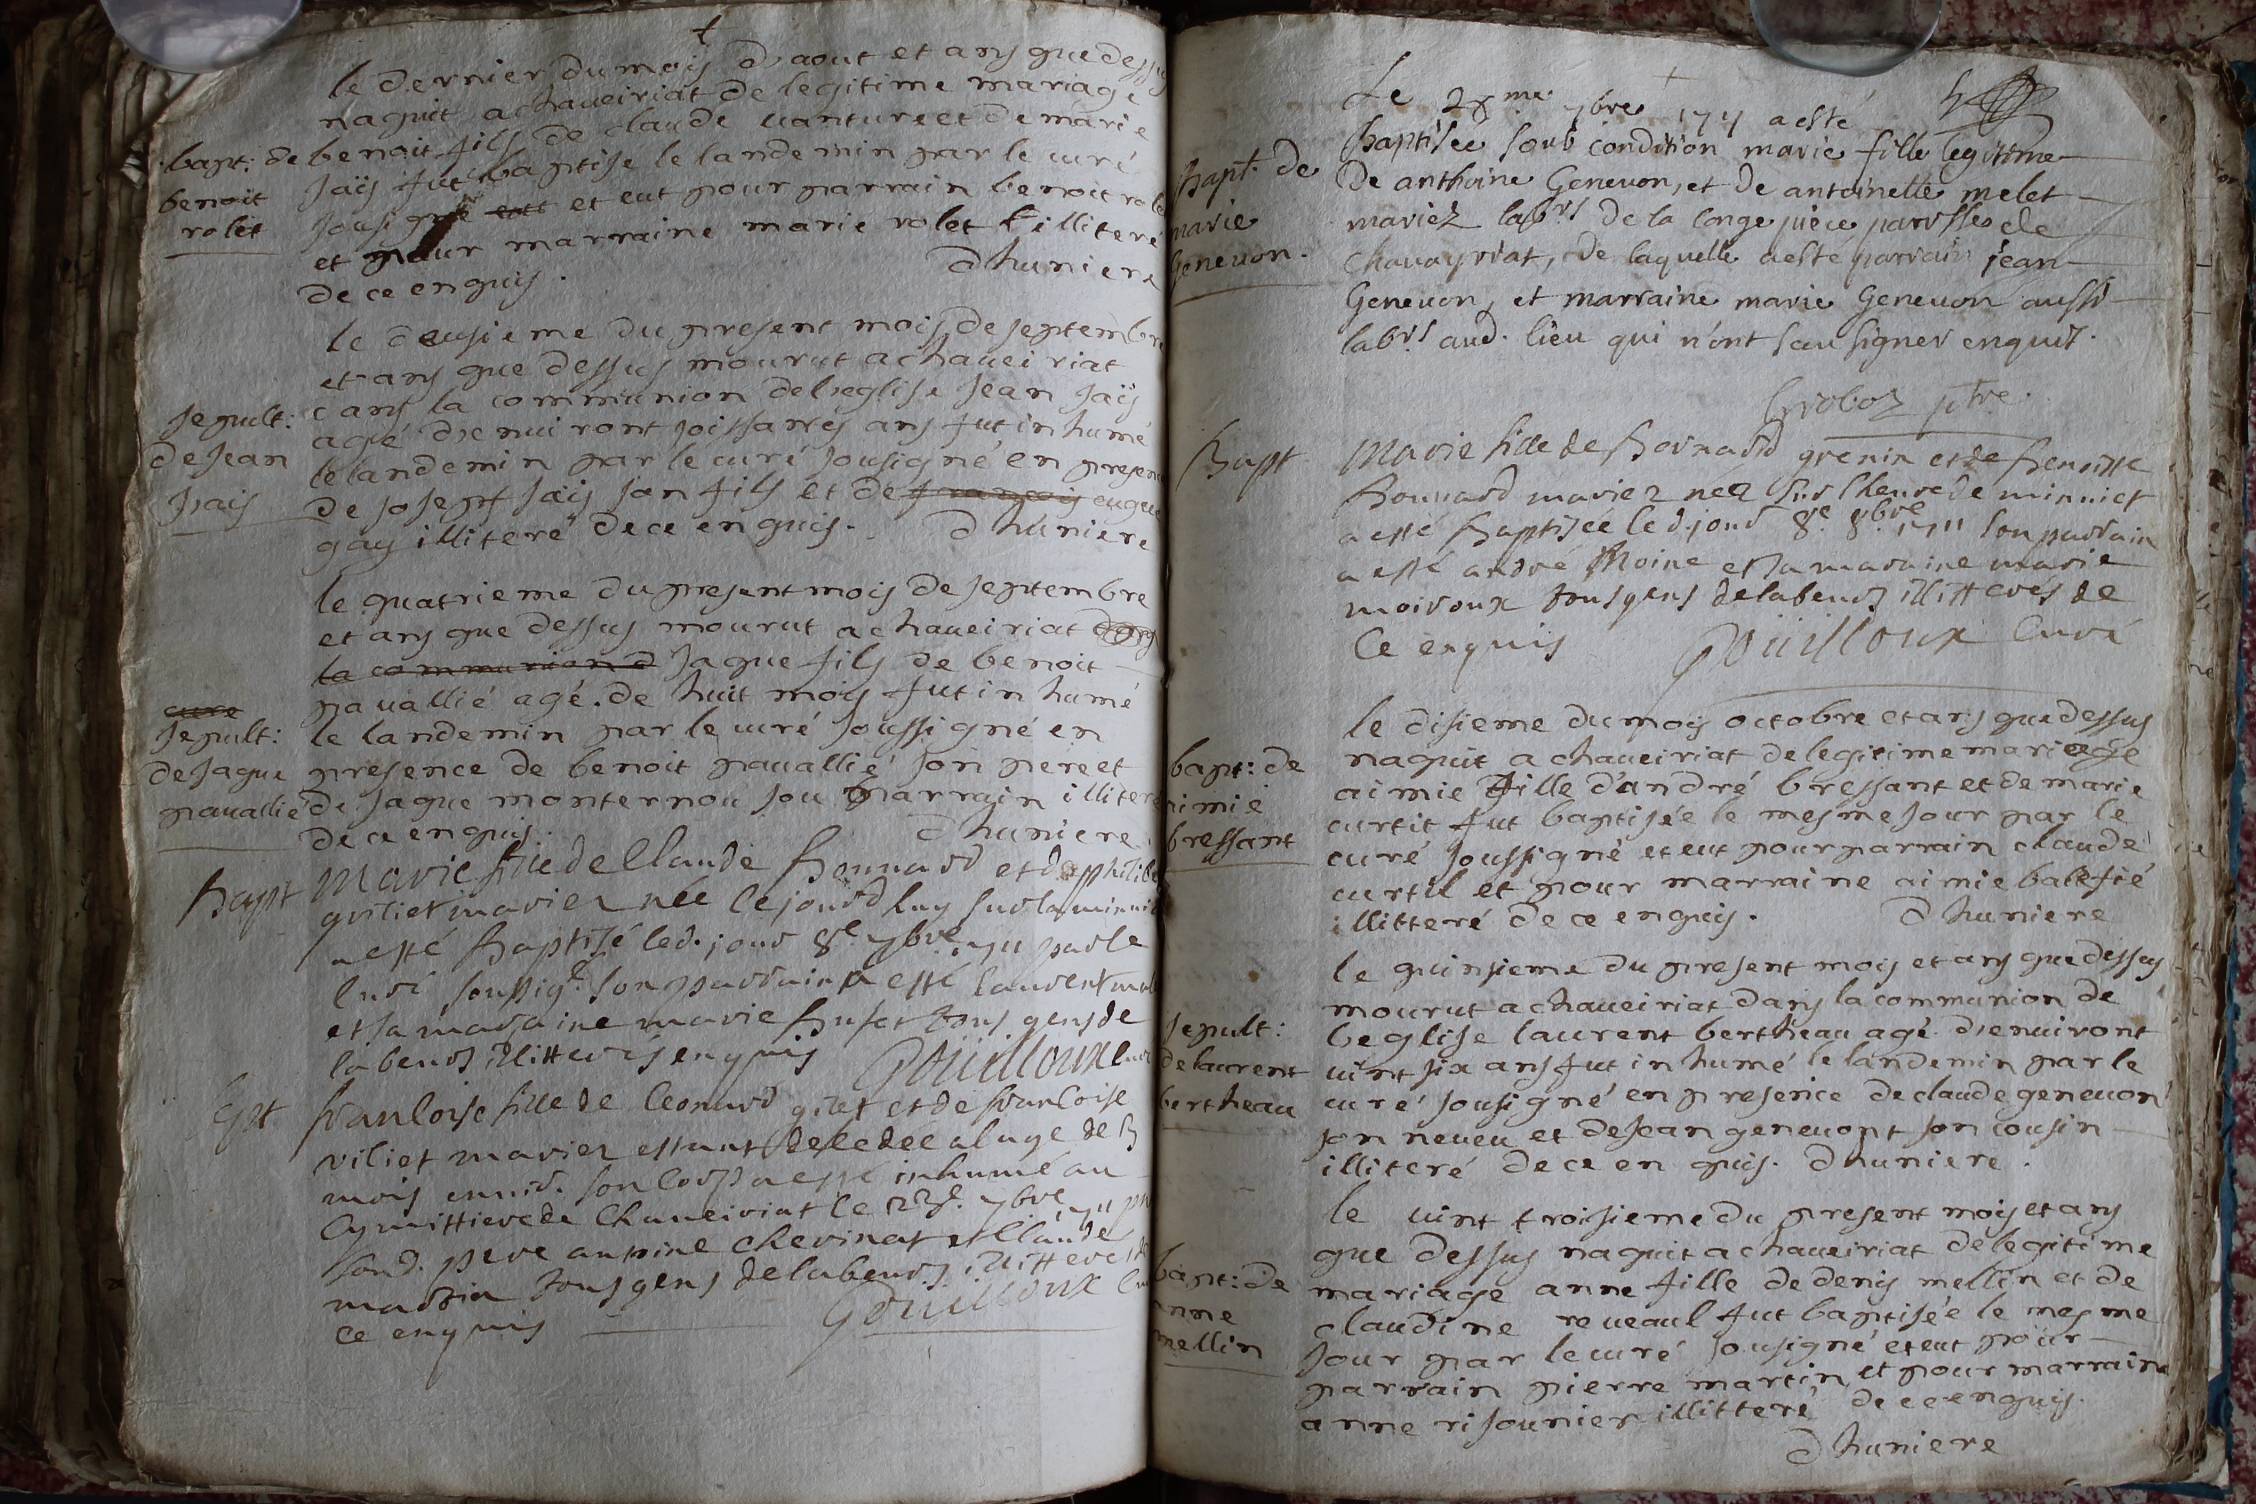 le dernier du mois d'aout et ans que dessus
naquit a chaveiriat de legitime mariage
bapt: de benoit fils de claude vanture et de marie
benoit
rolet
jaÿ fut baptise le landemin par le curé
sousigné eut et eut pour parrain benoit rolet
et pour marraine marie rolet illiteré
de ce enquis. dhuniere
le deusieme du present mois de septembre
et ans que dessus mourut a chaveiriat
dans la communion de l'eglise jean jaÿ
sepult:
de jean
jaÿ
agé d'environt soissantes ans fut inhumé
le landemin par le curé sousigné en presence
de joseph jaÿ son fils et de françois
gay illiteré de ce enquis. dhuniere
le quatrieme du present mois de septembre
et ans que dessus mourut a chaveiriat dans
la communion d jaque fils de benoit
pavallié agé de huit mois fut inhumé
sepult:
de jaque
pavallié
le landemin par le curé soussigné en
presence de benoit pavallié son pere et
de jaque monternou sou parrain illiteré
de ce enquis. dhuniere
bapt
Marie fille de Claude Bonnard et de philib
mariez née le jourdhuy sur la minuit
a esté baptizé led. jour 8e 7bre 1711 par le
curé soussigé son parrain a esté laurent
et sa maraine marie tous gens de
labeurs illitterés enquis Poüilloux curé
francoise fille de Leonard et de francoise
viliet mariez estant decedee a l'age de
mois environ son corps a esté inhumé au
cymittiere de Chaveiriat le 7bre 1711
sond. pere antoine chevinat et Claude
tous gens de labeurs illitterés
ce enquis Poüilloux
Le 28me 7bre 1711 a esté
Bapt. de
marie
Genevon.
baptisee soub condition marie fille legitime
de anthoine Genevon, et de antoinette melet
mariez labrs de la longe piece paroisse de
chavayriat, de laquelle a esté parrain jean
Genevon, et marraine marie Genevon aussi
labrs aud. lieu qui n'ont sau signer enquit.
Groboz ptre.
Bapt
Marie fille de Bernard grenin et de Benoiste
Bonnard mariez nee sur l'heure de minuict
a esté Baptisée led. jour 8e 8bre 1711 son parrain
a esté andré Moine et sa maraine marie
moiroux tous gens de labeurs illitterés de
Ce enquis Poüilloux Curé
le disieme du mois octobre et ans que dessus
naquit a chaveiriat de legitime mariage
bapt: de
aimie
bressant
aimie fille d'andré bressant et de marie
curtit fut baptisée le mesme jour par le
curé soussigné et eut pour parrain claude
curtil et pour marraine aimie
illitteré de ce enquis. dhuniere
le quinsieme du present mois et ans que dessus
mourut a chaveiriat dans la communion de
sepult:
de laurent
bertheau
l'eglise laurent bertheau agé d'environt
vint six ans fut inhumé le landemin par le
curé sousigné en presence de claude genevon
son neveu et de jean genevont son cousin
illiteré de ce en quis. dhuniere.
le vint troisieme du present mois et ans
que dessus naquit a chaveiriat de legitime
bapt: de
anne
mellin
mariage anne fille de denis mellin et de
claudine reveaul fut baptisée le mesme
jour par le curé sousigné et eut pour
parrain pierre martin et pour marraine
anne risounier illitteré de ce enquis.
dhuniere